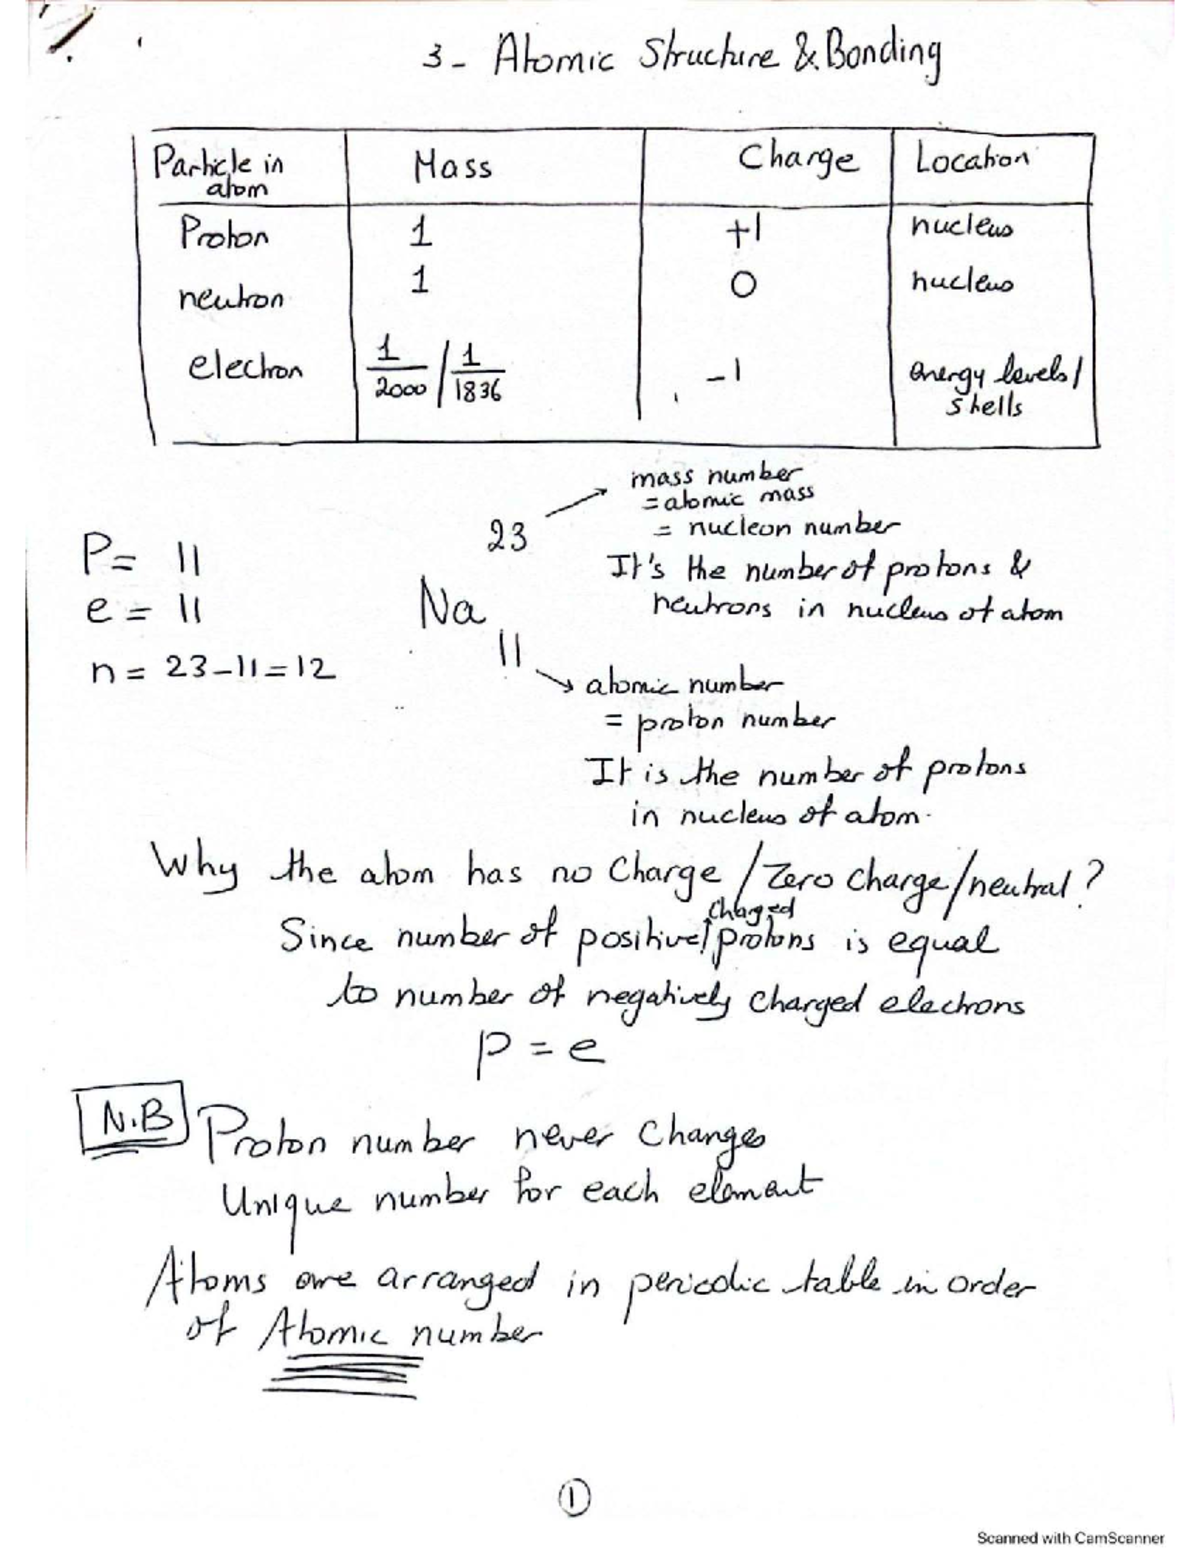 3- Atomic Structure & Bonding
Particle in atom Mass Charge Location
Proton 1 +1 nucleus
neutron 1 0 nucleus
electron 1/2000 / 1/1836 -1 energy levels/ shells
mass number
= atomic mass
23 = nucleon number
P= 11 It's the number of protons &
e = 11 Na neutrons in nucleus of atom
n = 23-11=12 11
atomic number
= proton number
It is the number of protons
in nucleus of atom.
Why the atom has no Charge / Zero charge/neutral?
Since number of positive charged protons is equal
to number of negatively charged electrons
p = e
N.B Proton number never changes
Unique number for each element
Atoms are arranged in periodic table in order
of Atomic number
1
Scanned with CamScanner